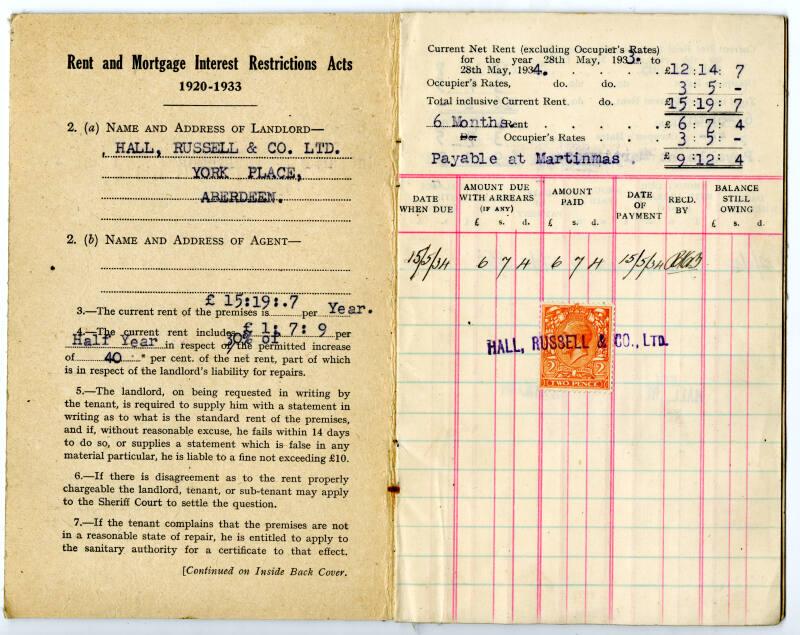 Rent and Mortgage Interest Restrictions Acts
1920-1933
2. (a) NAME AND ADDRESS OF LANDLORD—
HALL, RUSSELL & CO. LTD.
YORK PLACE,
ABERDEEN.
2. (b) NAME AND ADDRESS OF AGENT—
3.—The current rent of the premises is £ 15:19:.7 per Year.
4.—The current rent includes £ 1: 7: 9 per
Half Year in respect of 30% of the permitted increase
of 40 * per cent. of the net rent, part of which
is in respect of the landlord's liability for repairs.
5.—The landlord, on being requested in writing by
the tenant, is required to supply him with a statement in
writing as to what is the standard rent of the premises,
and if, without reasonable excuse, he fails within 14 days
to do so, or supplies a statement which is false in any
material particular, he is liable to a fine not exceeding £10.
6.—If there is disagreement as to the rent properly
chargeable the landlord, tenant, or sub-tenant may apply
to the Sheriff Court to settle the question.
7.—If the tenant complains that the premises are not
in a reasonable state of repair, he is entitled to apply to
the sanitary authority for a certificate to that effect.
[Continued on Inside Back Cover.
Current Net Rent (excluding Occupier's Rates)
for the year 28th May, 1933. to
28th May, 1934. . . . . £12:14: 7
Occupier's Rates, do. do. 3: 5: -
Total inclusive Current Rent. do. £15:19: 7
6 Months Rent . . . . £ 6: 7: 4
Do. Occupier's Rates . 3: 5: -
Payable at Martinmas . £ 9:12: 4
DATE WHEN DUE AMOUNT DUE WITH ARREARS (IF ANY) AMOUNT PAID DATE OF PAYMENT RECD. BY BALANCE STILL OWING
£ s. d. £ s. d. £ s. d.
15/5/34 6 7 4 6 7 4 15/5/34
HALL, RUSSELL & CO., LTD.
2 2
TWO PENCE